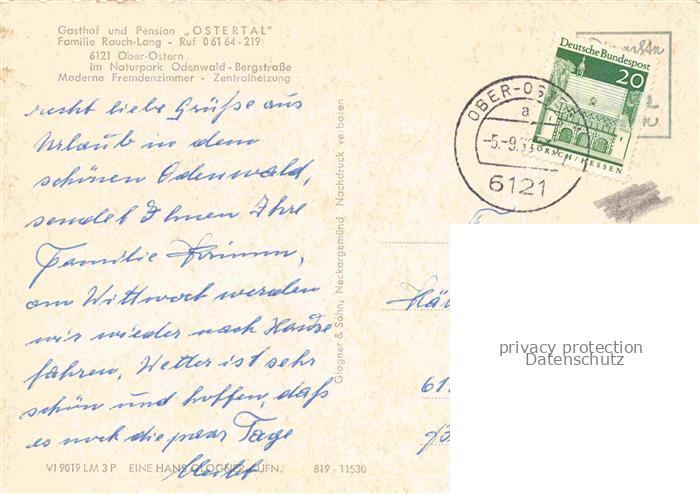 Gasthof und Pension „OSTERTAL"
Familie Rauch-Lang - Ruf 0 61 64 - 219
6121 Ober-Ostern
im Naturpark Odenwald - Bergstraße
Moderne Fremdenzimmer - Zentralheizung
recht liebe Grüße aus
Urlaub in dem
schönen Odenwald,
sendet Ihnen Ihre
Familie
am Mittwoch werden
wir wieder nach Hause
fahren, Wetter ist sehr
schön und hoffen, daß
es noch die paar Tage
bleibt
VI 9019 LM 3 P EINE HANS GLOGNER AUFN. 819 - 11530
Glogner & Sohn, Neckargemünd Nachdruck verboten
Deutsche Bundespost
20
LORSCH/HESSEN
OBER-OS
a
-5.-9.
6121
privacy protection
Datenschutz
61